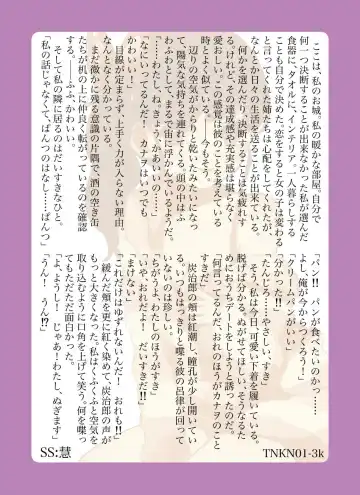 ここは、私のお城。私の暖かな部屋。自分で
何一つ決断することが出来なかった私が選んだ
食器に、タオルに、インテリア。一人暮らしする
ことも自分で決めた。恋をすると女の子は変わる
と言ってくれた姉たちは心配をしてくれたが、
なんとか日々の生活を送ることが出来ている。
何かを選んだり、決断することは気疲れす
る。けれど、その達成感や充実感は堪らなく
愛おしい。この感覚は彼のことを考えている
時とよく似ている。――今もそう。
辺りの空気がからりと乾いたみたいになっ
て、陽気な気持ちに溢れてくる。頭の中はふ
わふわとして、まるで宙に浮いているようだ。
「……わたし、ね。きょう、かあいいの……」
「なにいってるんだ！　カナヲはいつでも
かわいい！」
目線が定まらず、上手く力が入らない理由。
なんとなく分かっている。
まだ微かに残る意識の片隅で、酒の空き缶
たちが机の上に仲良く転がっているのを確認
する。
そして私の隣に居るのはだいすきなひと。
「私の話じゃなくて、ぱんつのはなし……ぱんつ」
「パン!!　パンが食べたいのかっ……
よし、俺が今からつくろう！」
「クリームパンがいい」
「分かった!!」
「たんじろ……やさしい、すき」
そう、私は今日、可愛い下着を履いている。
脱げば分かる。ぬがせてほしい。そうなるた
めにおうちデートをしようと誘ったのだ。
「何言ってるんだ、おれのほうがカナヲのこと
すきだ」
炭治郎の頬は紅潮し、瞳孔が少し開いてい
る。いつもはっきりと喋る彼の呂律が回って
いないのは珍しい。
「ちがいますよ、わたしのほうがすき」
「いや、おれだよ！　だいすきだ!!」
「まけない」
「これだけはゆずれないんだ！　おれも!!」
緩んだ頬を更に紅く染めて、炭治郎の声が
もっと大きくなった。私はくふくふと空気を
取り込むように口角を上げて笑う。何を喋っ
てもただただ面白かった。
「よおし、うん！　じゃあ、わたし、ぬぎます」
「うん！　うん!?」
SS:慧
TNKN01-3k